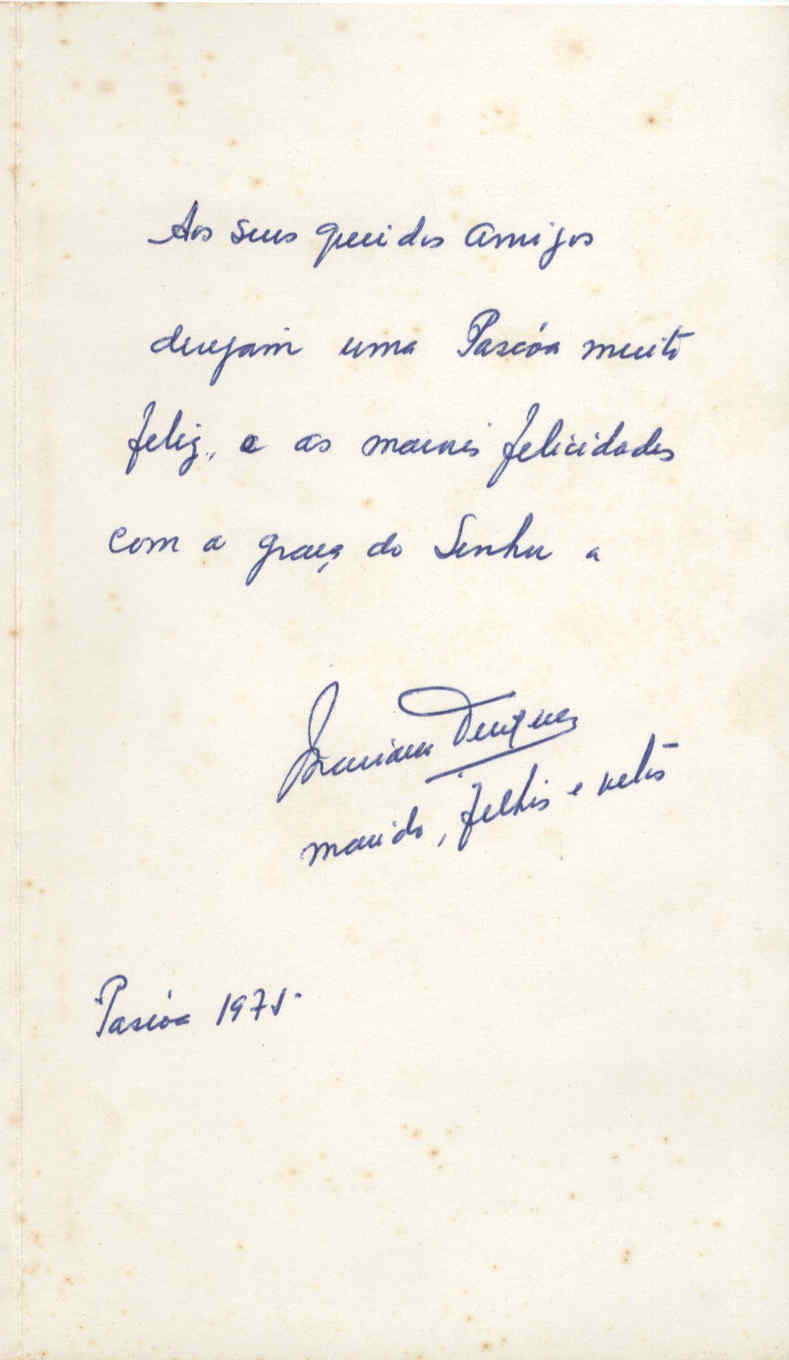 Aos seus queridos amigos
desejam uma Pascóa muito
feliz, e as maiores felicidades
com a graça do Senhor a
marido, filhos e netos
Pascóa 1975